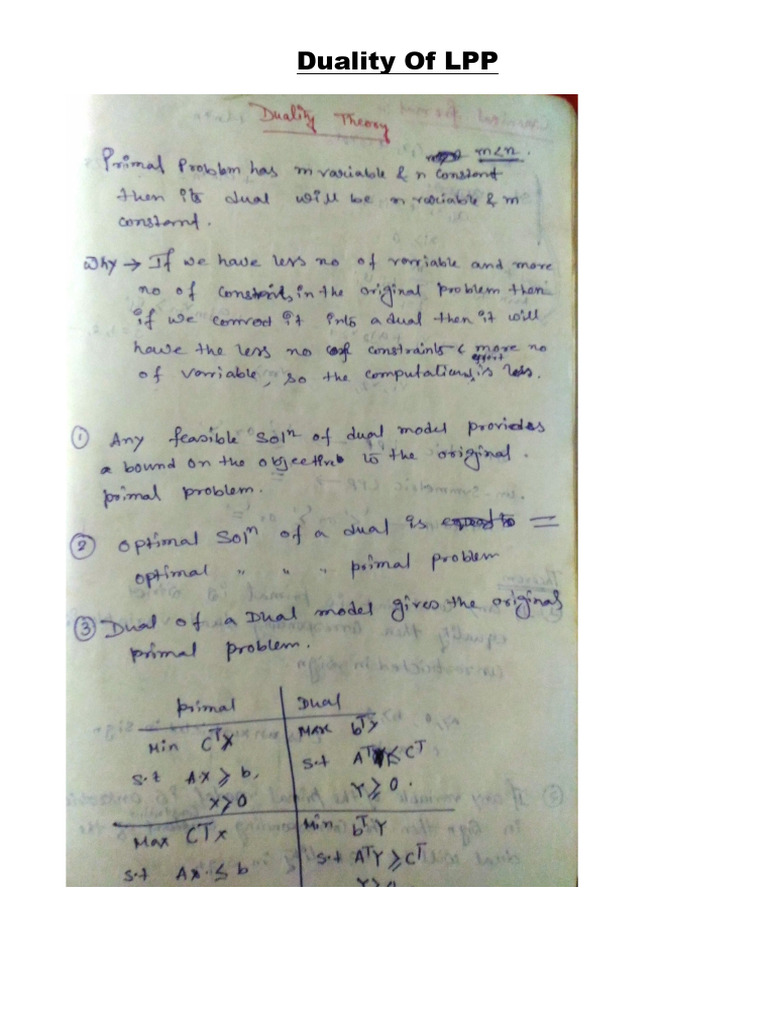 Duality Of LPP
Duality Theory
m<n.
Primal Problem has m variable & n constant
then its dual will be n variable & m
constant.
Why → If we have less no of varriable and more
no of constraints, in the original problem then
if we convert it into a dual then it will
have the less no of constraints & more no
of varriable, so the computational effort is less.
① Any feasible Solⁿ of dual model provides
a bound on the objective to the original
primal problem.
② Optimal Solⁿ of a dual is =
optimal " " " primal problem
③ Dual of a Dual model gives the original
primal problem.
Primal | Dual
Min CᵀX | Max bᵀY
S.t AX ≥ b, | S.t AᵀY ≤ Cᵀ
X≥0 | Y ≥ 0.
Max CᵀX | Min bᵀY
S.t AX ≤ b | S.t AᵀY ≥ Cᵀ
Y≥0